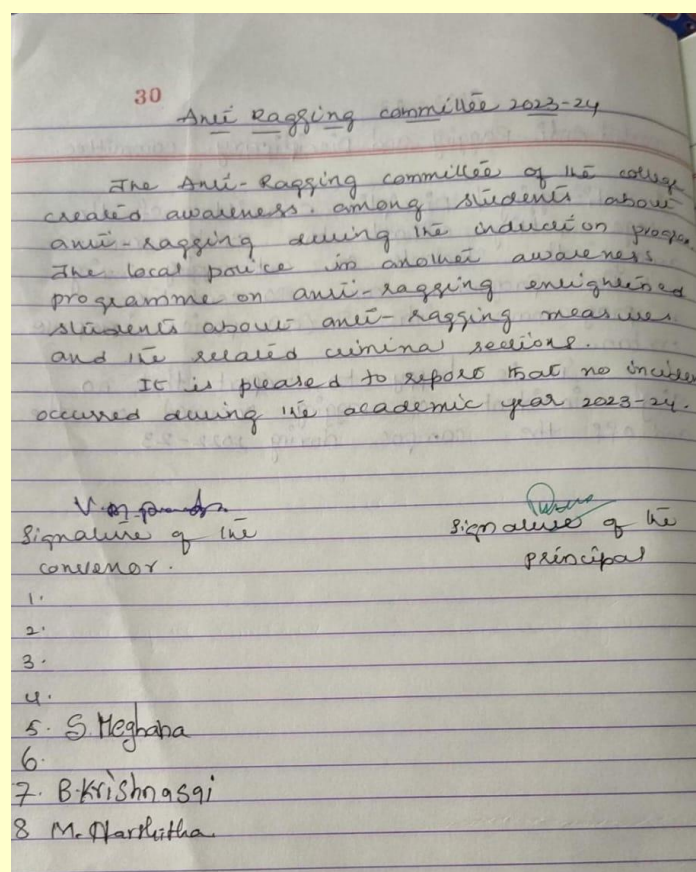 30
Anti Ragging committee 2023-24
The Anti-Ragging committee of the college
created awareness among students about
anti-ragging during the induction program.
The local police in another awareness
programme on anti-ragging enlightened
students about anti-ragging measures
and the related criminal sections.
It is pleased to report that no inciden
occurred during the academic year 2023-24.
Signature of the
convenor.
Signature of the
principal
1.
2.
3.
4.
5. S. Meghana
6.
7. B. Krishnasai
8 M. Harshitha